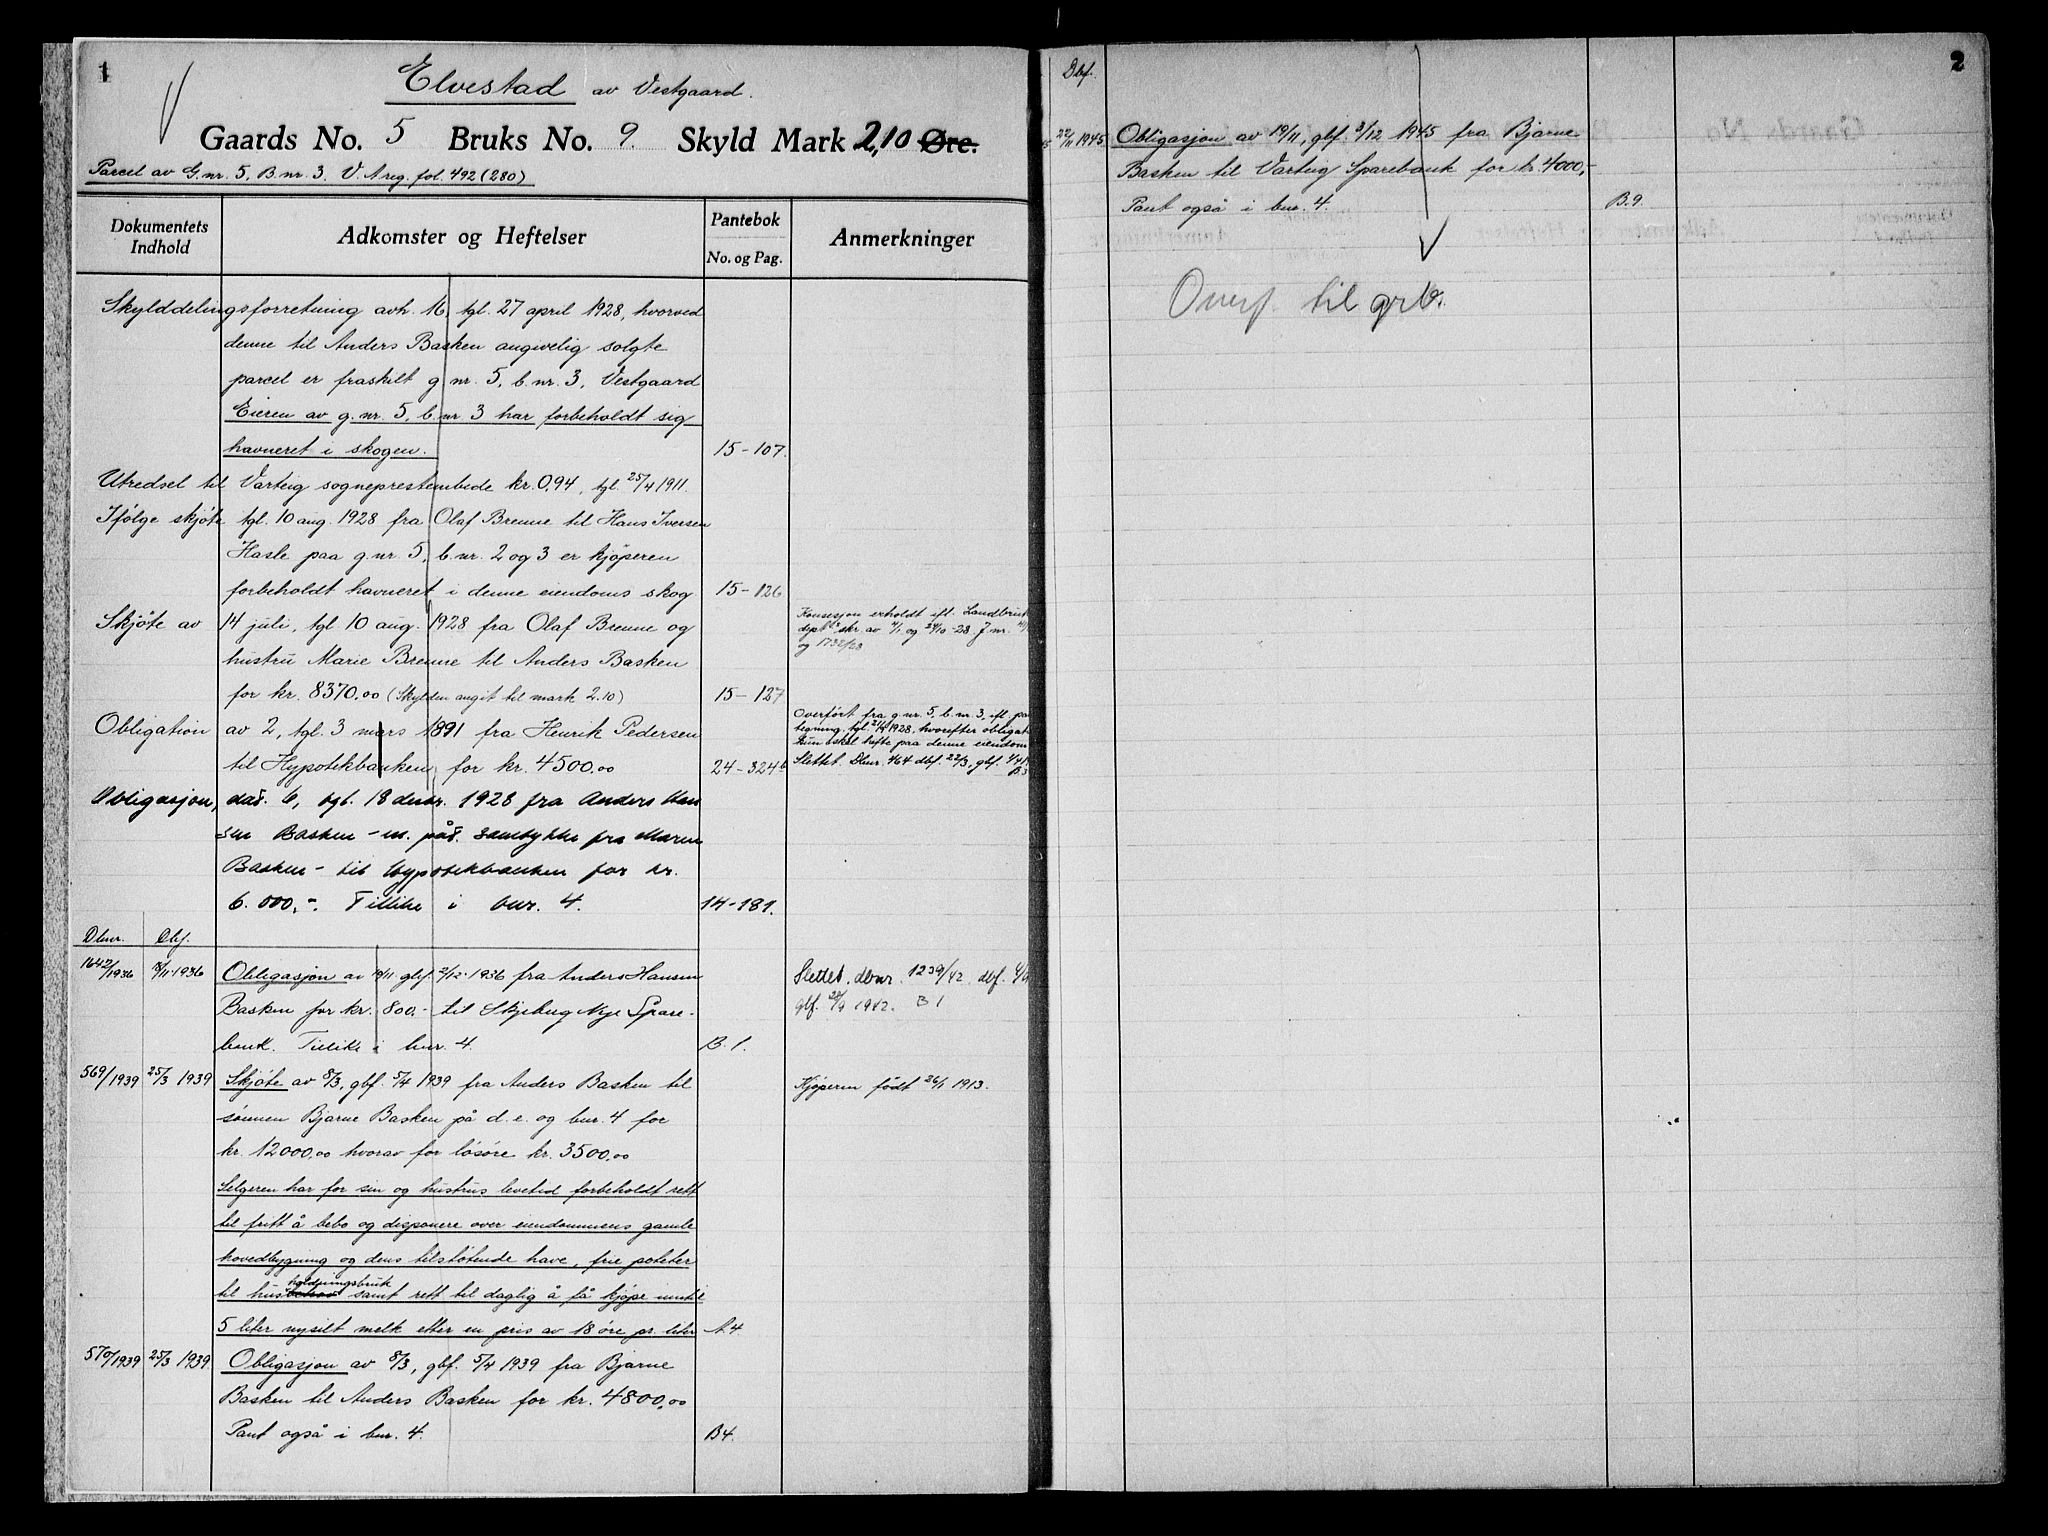 1
Elvestad av Vestgaard.
Gaards No. 5 Bruks No. 9. Skyld Mark 2,10 Øre.
Parcel av G.nr. 5, B.nr. 3. V. A reg. fol. 492 (280)
Dokumentets Indhold
Adkomster og Heftelser
Pantebok
No. og Pag.
Anmerkninger
Skylddelingsforretning avh. 16, tgl. 27 april 1928, hvorved
denne til Anders Basken angivelig solgte
parcel er fraskilt g.nr. 5, b.nr. 3, Vestgaard
Eieren av g.nr. 5, b.nr 3 har forbeholdt sig
havneret i skogen. 15-107.
Utredsel til Varteig sogneprestembede kr. 0,94, tgl. 25/4 1911.
Ifølge skjøte tgl. 10 aug. 1928 fra Olaf Brenne til Hans Iversen
Hasle paa g.nr 5, b.nr. 2 og 3 er kjøperen
forbeholdt havneret i denne eiendoms skog 15-126
Skjøte av 14 juli, tgl. 10 aug. 1928 fra Olaf Brenne og
hustru Marie Brenne til Anders Basken
for kr. 8370,00 (Skylden angit til mark 2.10) 15-127
Konsesjon erholdt ifl. Landbruks
dept's skr. av og 24/10-28 J.nr.
og 1732/28
Obligation av 2, tgl. 3 mars 1891 fra Henrik Pedersen
til Hypotekbanken for kr. 4500,00 24-324b
Overført fra g.nr. 5, b.nr. 3, ifl. paa
tegning, tgl. 1928, hvorefter obligat.
kun skal hefte paa denne eiendom
Slettet. Dbnr. 464 dbf. 22/3, gbf.
B.3
Obligasjon, dat. 6, tgl. 18 desbr. 1928 fra Anders Han
sen Basken - m. påt. samtykke fra Maren
Basken - til Hypotekbanken for kr.
6.000,-. Tillike i bnr. 4. 14-181.
Dbnr. Dbf.
1642/1936 18/11-1936 Obligasjon av 19/11 gbf. 2/12-1936 fra Anders Hansen
Basken for kr. 800.- til Skjeberg Nye Spare-
bank. Tillike i bnr. 4. B. 1.
Slettet. dbnr. 1239/42. dbf.
gbf. 1942. B 1
569/1939 25/3 1939 Skjøte av 8/3, gbf. 5/4 1939 fra Anders Basken til
sønnen Bjarne Basken på d.e. og bnr. 4 for
kr. 12000,00 hvorav for løsøre kr. 3500,00
Selgeren har for sin og hustrus levetid forbeholdt rett
til fritt å bebo og disponere over eiendommens gamle
hovedbygning og dens tilstøtende have, frie poteter
til husbehov holdningsbruk samt rett til daglig å få kjøpe inntil
5 liter nysilt melk etter en pris av 18 øre pr. liter A 4
Kjøperen født 26/1 1913.
570/1939 25/3 1939. Obligasjon av 8/3, gbf. 5/4 1939 fra Bjarne
Basken til Anders Basken for kr. 4800,00
Pant også i bnr. 4. B4.
2
Dbf.
22/11 1945 Obligasjon av 19/11, gbf. 3/12 1945 fra Bjarne
Basken til Varteig Sparebank for kr. 4000,-
Pant også i bnr. 4. B.9.
Overf. til grb.